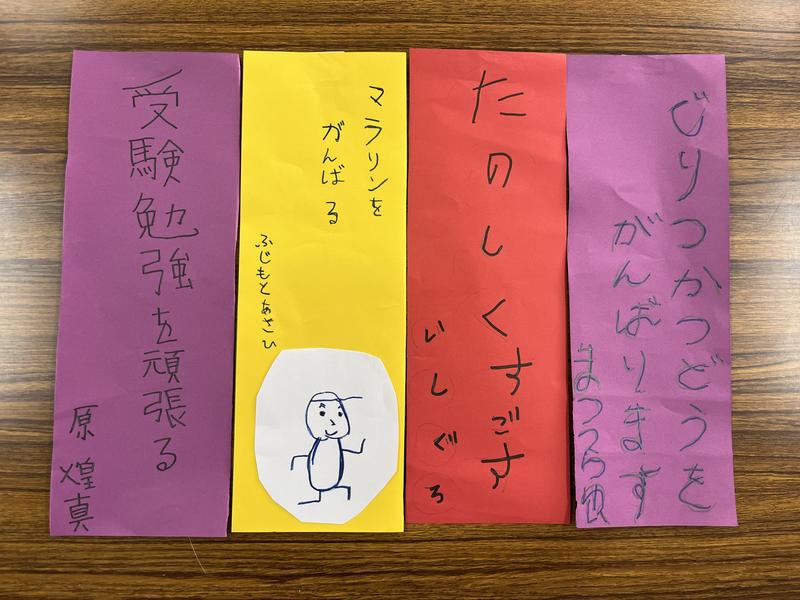 じりつかつどうを
がんばります
まつうら
たのしくすごす
いしぐろ
マラソンを
がんばる
ふじもとあさひ
受験勉強を頑張る
原 煌真